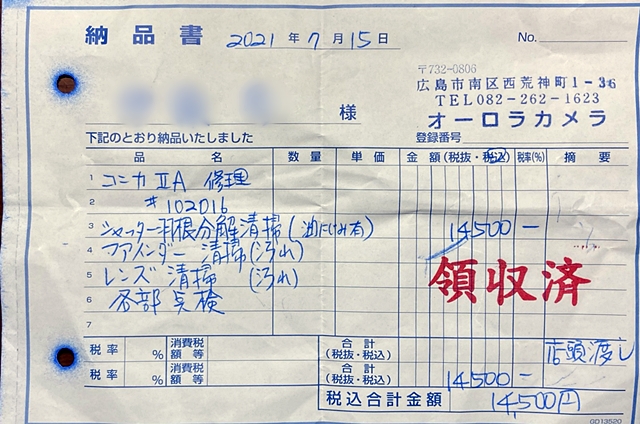 納品書 2021年7月15日 No.
〒732-0806
広島市南区西荒神町1-36
TEL082-262-1623
オーロラカメラ
様
下記のとおり納品いたしました 登録番号
品名 数量 単価 金額(税抜・税込) 税率(%) 摘要
1 コニカⅡA 修理
2 #102016
3 シャッター羽根分解清掃(油にじみ有) 14,500-
4 ファインダー清掃(汚れ)
5 レンズ清掃(汚れ)
6 各部点検
7
領収済
税率 % 消費税額等 合計(税抜・税込) 店頭渡し
税率 % 消費税額等 合計(税抜・税込) 14,500-
税込合計金額 14,500円
GD13520